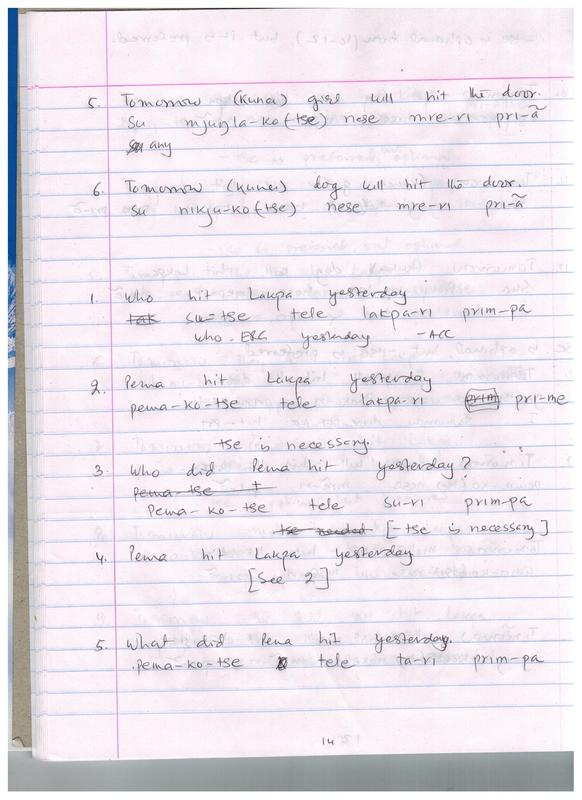 5. Tomorrow (kunei) girl will hit the door.
su mjuŋla-ko(tse) nese mre-ri pri-ã
any
6. Tomorrow (kunei) dog will hit the door.
su nikju-ko(tse) nese mre-ri pri-ã
1. Who hit Lakpa yesterday
tak su-tse tele lakpa-ri prim-pa
who-ERG yesterday -ACC
2. Pema hit Lakpa yesterday
pema-ko-tse tele lakpa-ri prim pri-me
-tse is necessary.
3. Who did Pema hit yesterday?
pema-tse t
Pema-ko-tse tele su-ri prim-pa
tse needed [-tse is necessary]
4. Pema hit Lakpa yesterday
[See 2]
5. What did Pema hit yesterday.
Pema-ko-tse tele ta-ri prim-pa
14